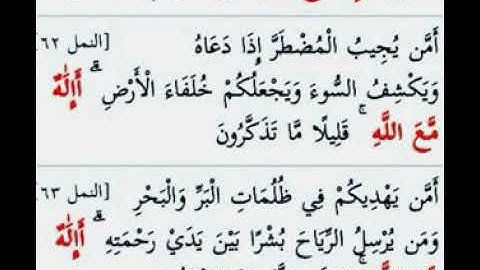 أَمَّن يُجِيبُ الْمُضْطَرَّ إِذَا دَعَاهُ [النمل ٦٢]
وَيَكْشِفُ السُّوءَ وَيَجْعَلُكُمْ خُلَفَاءَ الْأَرْضِ ۗ أَإِلَٰهٌ
مَّعَ اللَّهِ ۚ قَلِيلًا مَّا تَذَكَّرُونَ
أَمَّن يَهْدِيكُمْ فِي ظُلُمَاتِ الْبَرِّ وَالْبَحْرِ [النمل ٦٣]
وَمَن يُرْسِلُ الرِّيَاحَ بُشْرًا بَيْنَ يَدَيْ رَحْمَتِهِ ۗ أَإِلَٰهٌ